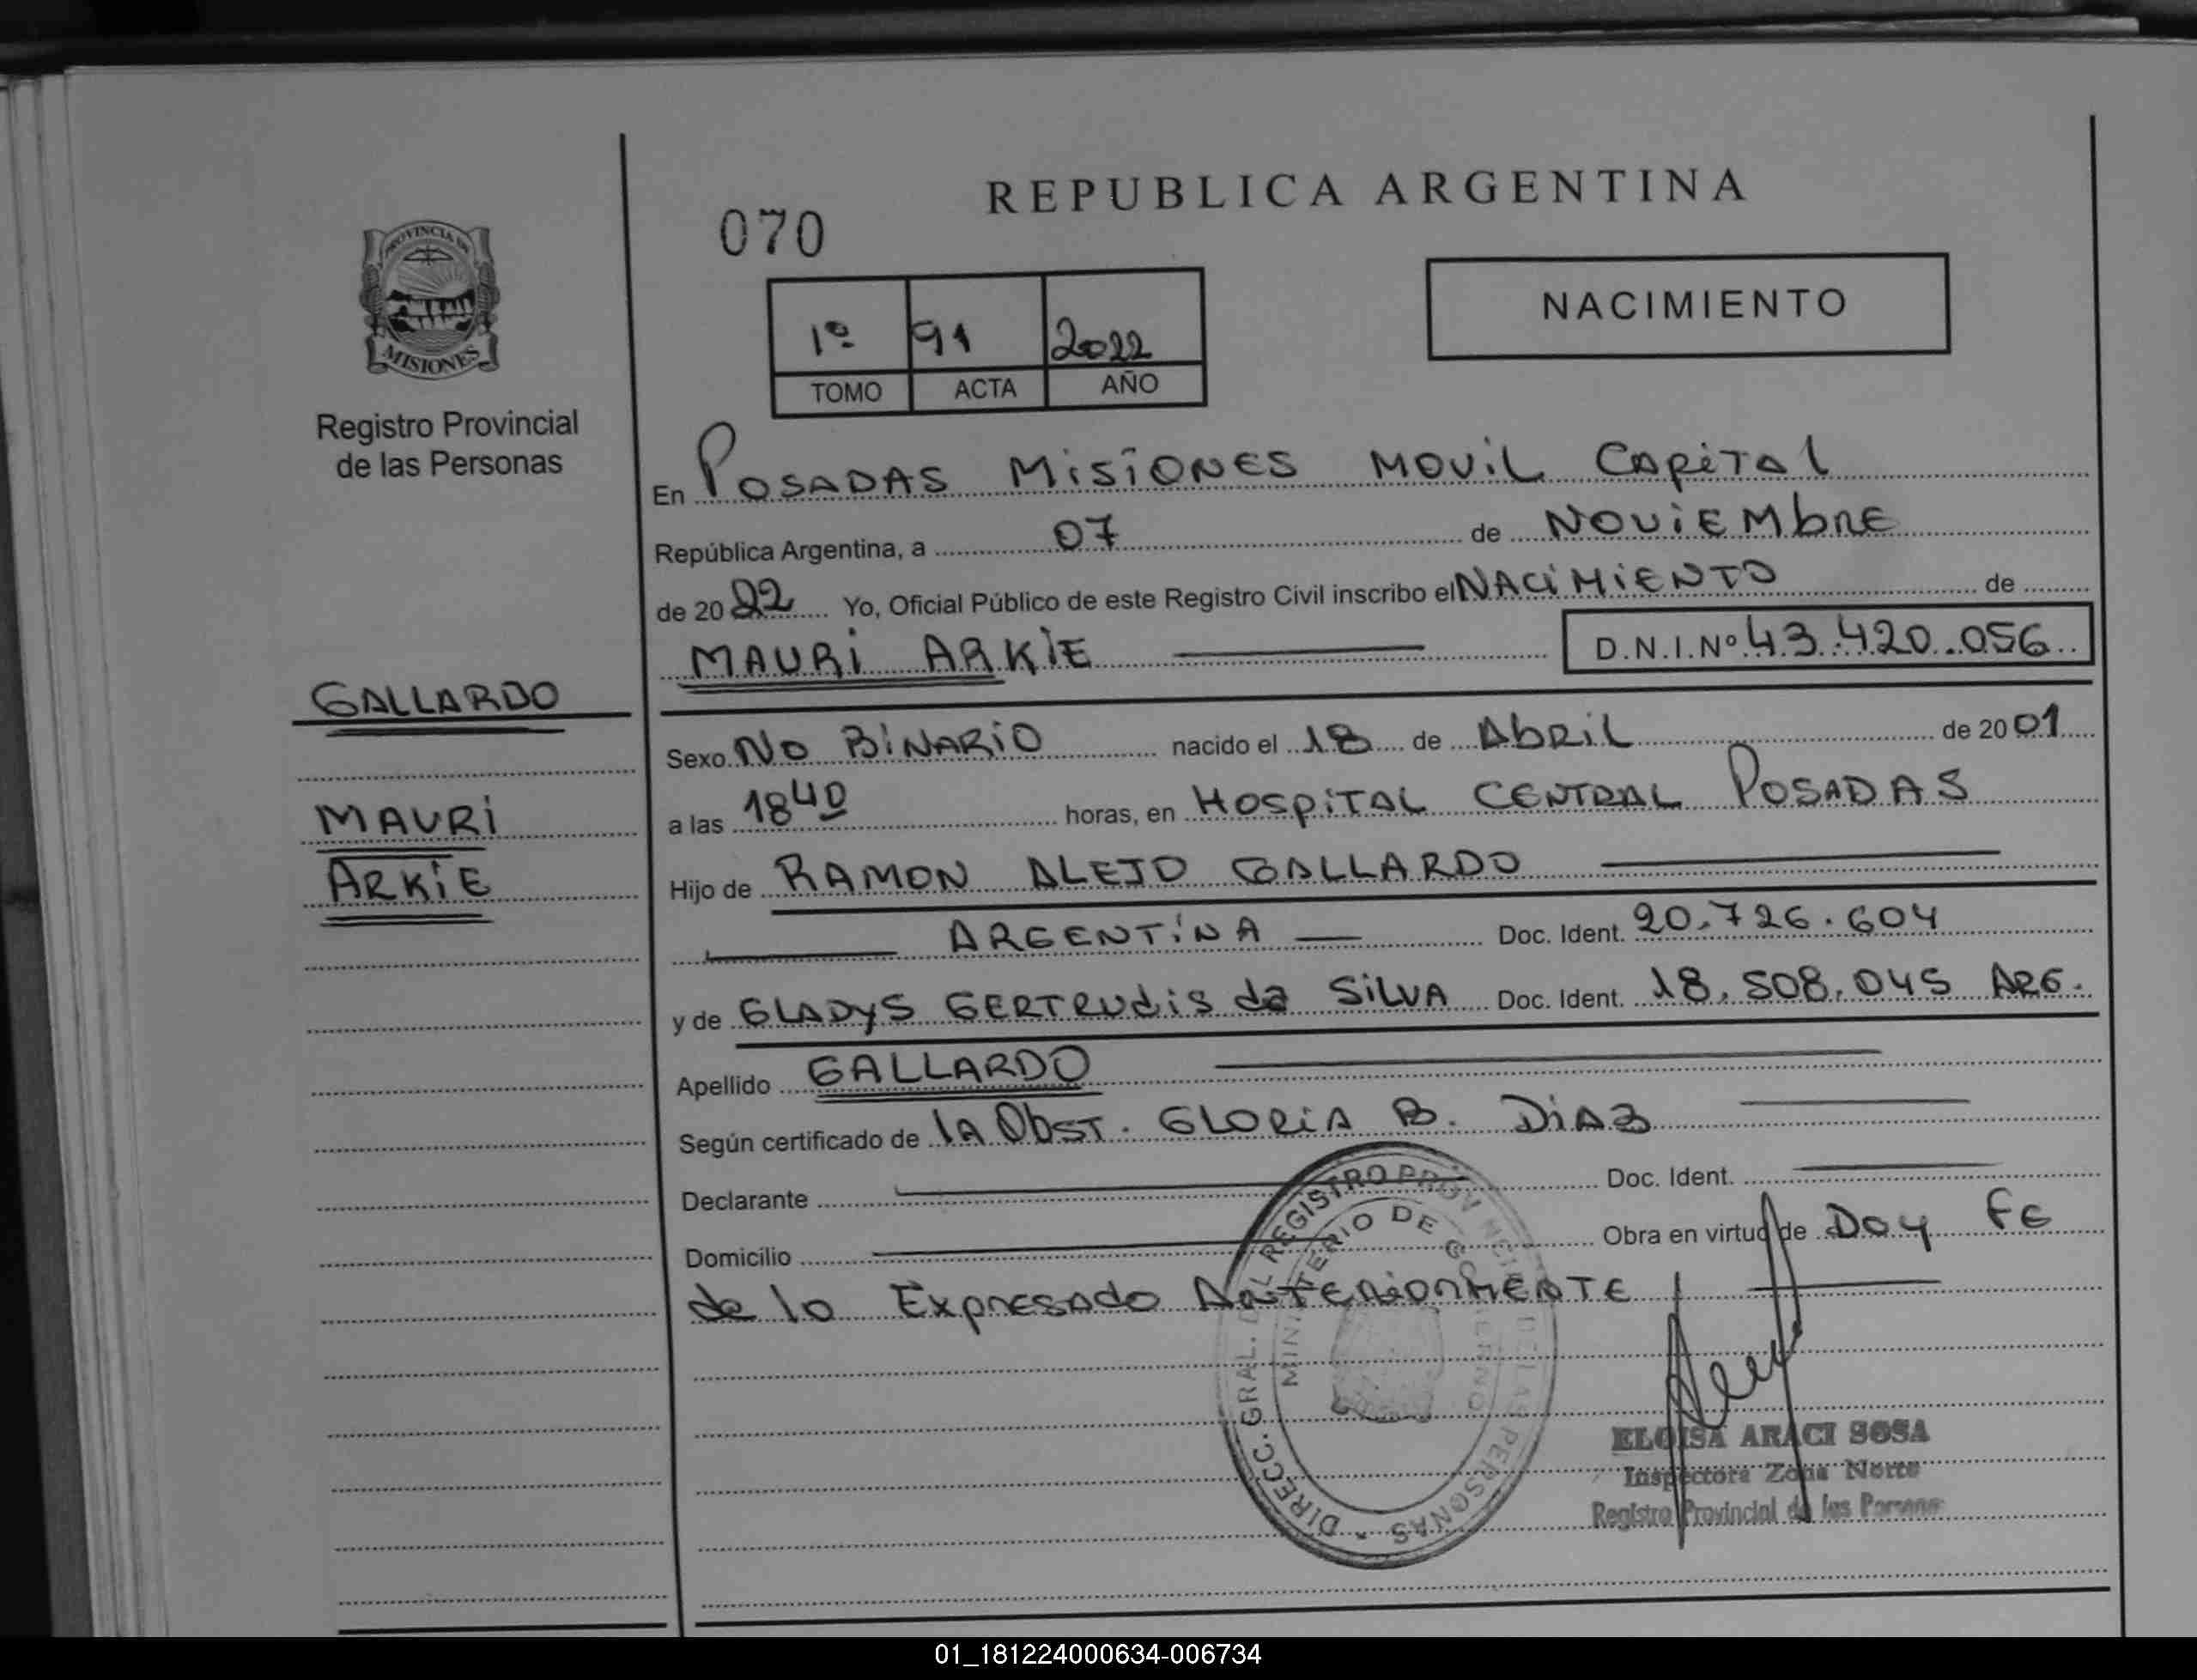 REPUBLICA ARGENTINA
070
PROVINCIA DE
MISIONES
Registro Provincial
de las Personas
1º 91 2022
TOMO ACTA AÑO
NACIMIENTO
En POSADAS MISIONES MOVIL CAPITAL
República Argentina, a 07 de NOVIEMbRE
de 2022 Yo, Oficial Público de este Registro Civil inscribo el NACIMIENTO de
MAURI ARKIE D.N.I.Nº 43.420.056
GALLARDO
MAURI
ARKIE
Sexo NO BINARIO nacido el 18 de AbRIL de 2001
a las 18 40 horas, en HOSPITAL CENTRAL POSADAS
Hijo de RAMON ALEJO GALLARDO
ARGENTINA Doc. Ident. 20.726.604
y de GLADYS GERTRUdIS da SILVA Doc. Ident. 18.508.045 ARG.
Apellido GALLARDO
Según certificado de lA ObST. GLORIA B. DIAZ
Declarante Doc. Ident.
Domicilio Obra en virtud de Doy FE
de lo ExpresAdo ANTERIORMENTE
DIRECC. GRAL. DEL REGISTRO PROV. DE LAS PERSONAS
MINISTERIO DE GOBIERNO
ELOISA ARACI SOSA
Inspectora Zona Norte
Registro Provincial de las Personas
01_181224000634-006734